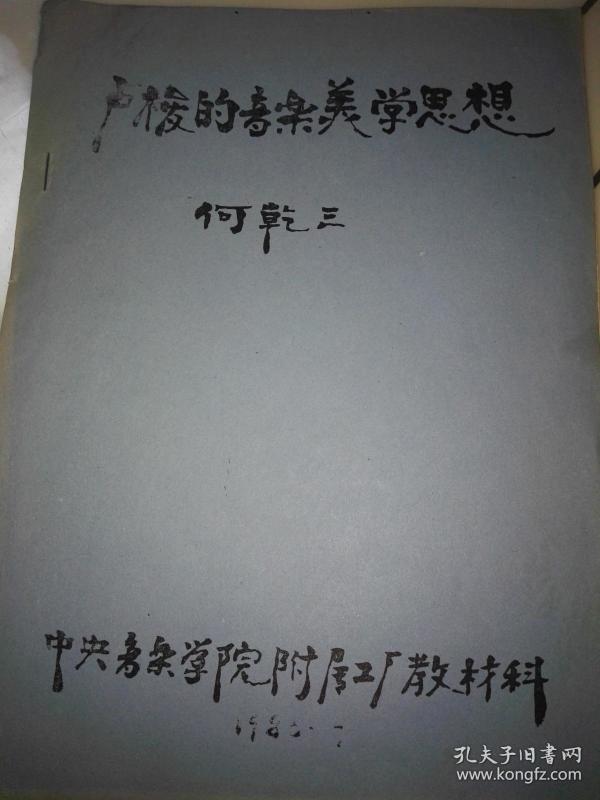 卢梭的音乐美学思想
何乾三
中央音乐学院附属工厂教材科
孔夫子旧书网
www.kongfz.com